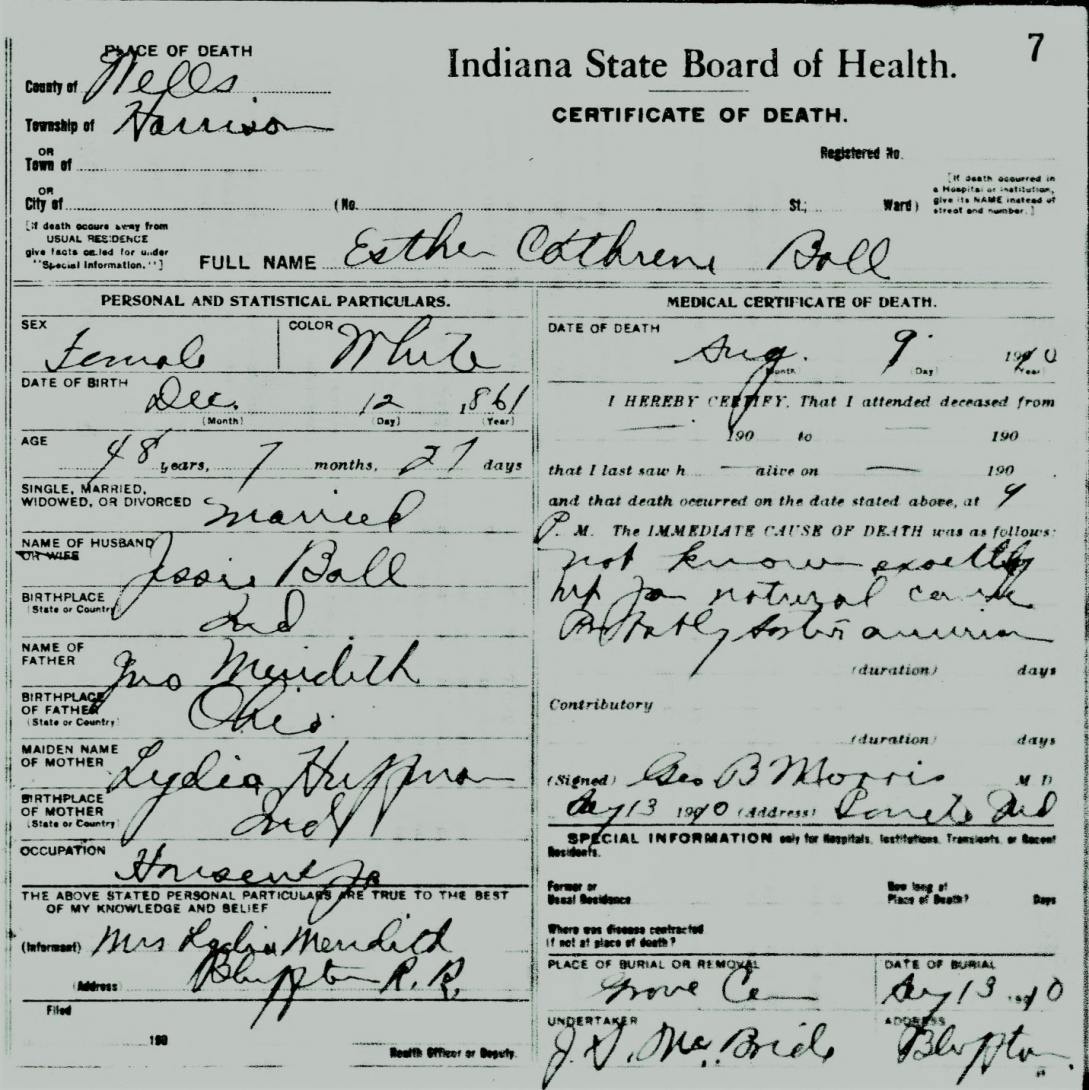 7
PLACE OF DEATH
Indiana State Board of Health.
County of Wells
CERTIFICATE OF DEATH.
Township of Harrison
Registered No.
OR
Town of
OR
City of (No. St.; Ward)
[If death occurred in
a Hospital or institution,
give its NAME instead of
street and number.]
[If death occurs away from
USUAL RESIDENCE
give facts called for under
"Special Information."]
FULL NAME Esther Cathrene Ball
PERSONAL AND STATISTICAL PARTICULARS.
SEX Female
COLOR White
DATE OF BIRTH
Dec. 12 1861
(Month) (Day) (Year)
AGE
48 years, 7 months, 27 days
SINGLE, MARRIED,
WIDOWED, OR DIVORCED Married
NAME OF HUSBAND
OR WIFE Jessie Ball
BIRTHPLACE
(State or Country) Ind
NAME OF
FATHER Jno Meridith
BIRTHPLACE
OF FATHER
(State or Country) Ohio
MAIDEN NAME
OF MOTHER Lydia Huffman
BIRTHPLACE
OF MOTHER
(State or Country) Ind
OCCUPATION
THE ABOVE STATED PERSONAL PARTICULARS ARE TRUE TO THE BEST
OF MY KNOWLEDGE AND BELIEF
(Informant) Mrs Lydia Meridith
(Address) Bluffton R.R.
Filed
190
Health Officer or Deputy.
MEDICAL CERTIFICATE OF DEATH.
DATE OF DEATH
Aug. 9 1910
(Month) (Day) (Year)
I HEREBY CERTIFY, That I attended deceased from
190 to 190
that I last saw h alive on 190
and that death occurred on the date stated above, at 9
P. M. The IMMEDIATE CAUSE OF DEATH was as follows:
not known exactly
natural cause
Probably
(duration) days
Contributory
(duration) days
(Signed) Geo B Morris M D
Aug 13 1910 (Address) Ind
SPECIAL INFORMATION only for Hospitals, Institutions, Transients, or Recent
Residents.
Former or
Usual Residence
How long at
Place of Death? Days
Where was disease contracted
if not at place of death?
PLACE OF BURIAL OR REMOVAL
Grove Cem
DATE OF BURIAL
Aug 13 1910
UNDERTAKER
J. S. McBride
ADDRESS
Bluffton